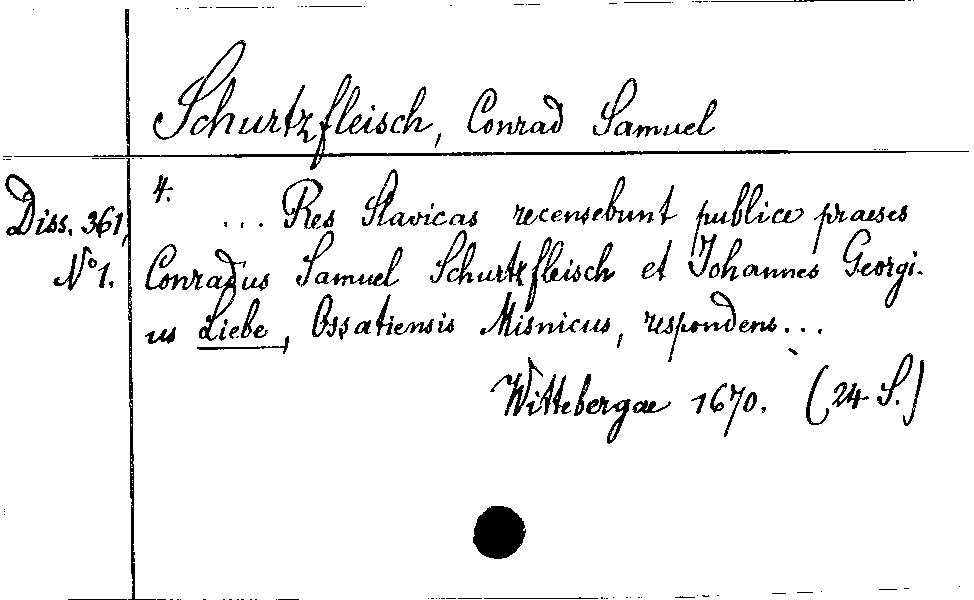 Schurtzfleisch, Conrad Samuel
Diss. 361,
No 1.
4.
... Res Slavicas recensebunt publice praeses
Conradus Samuel Schurtzfleisch et Johannes Georgi-
us Liebe, Ossatiensis Misnicus, respondens...
Wittebergae 1670. (24 S.)